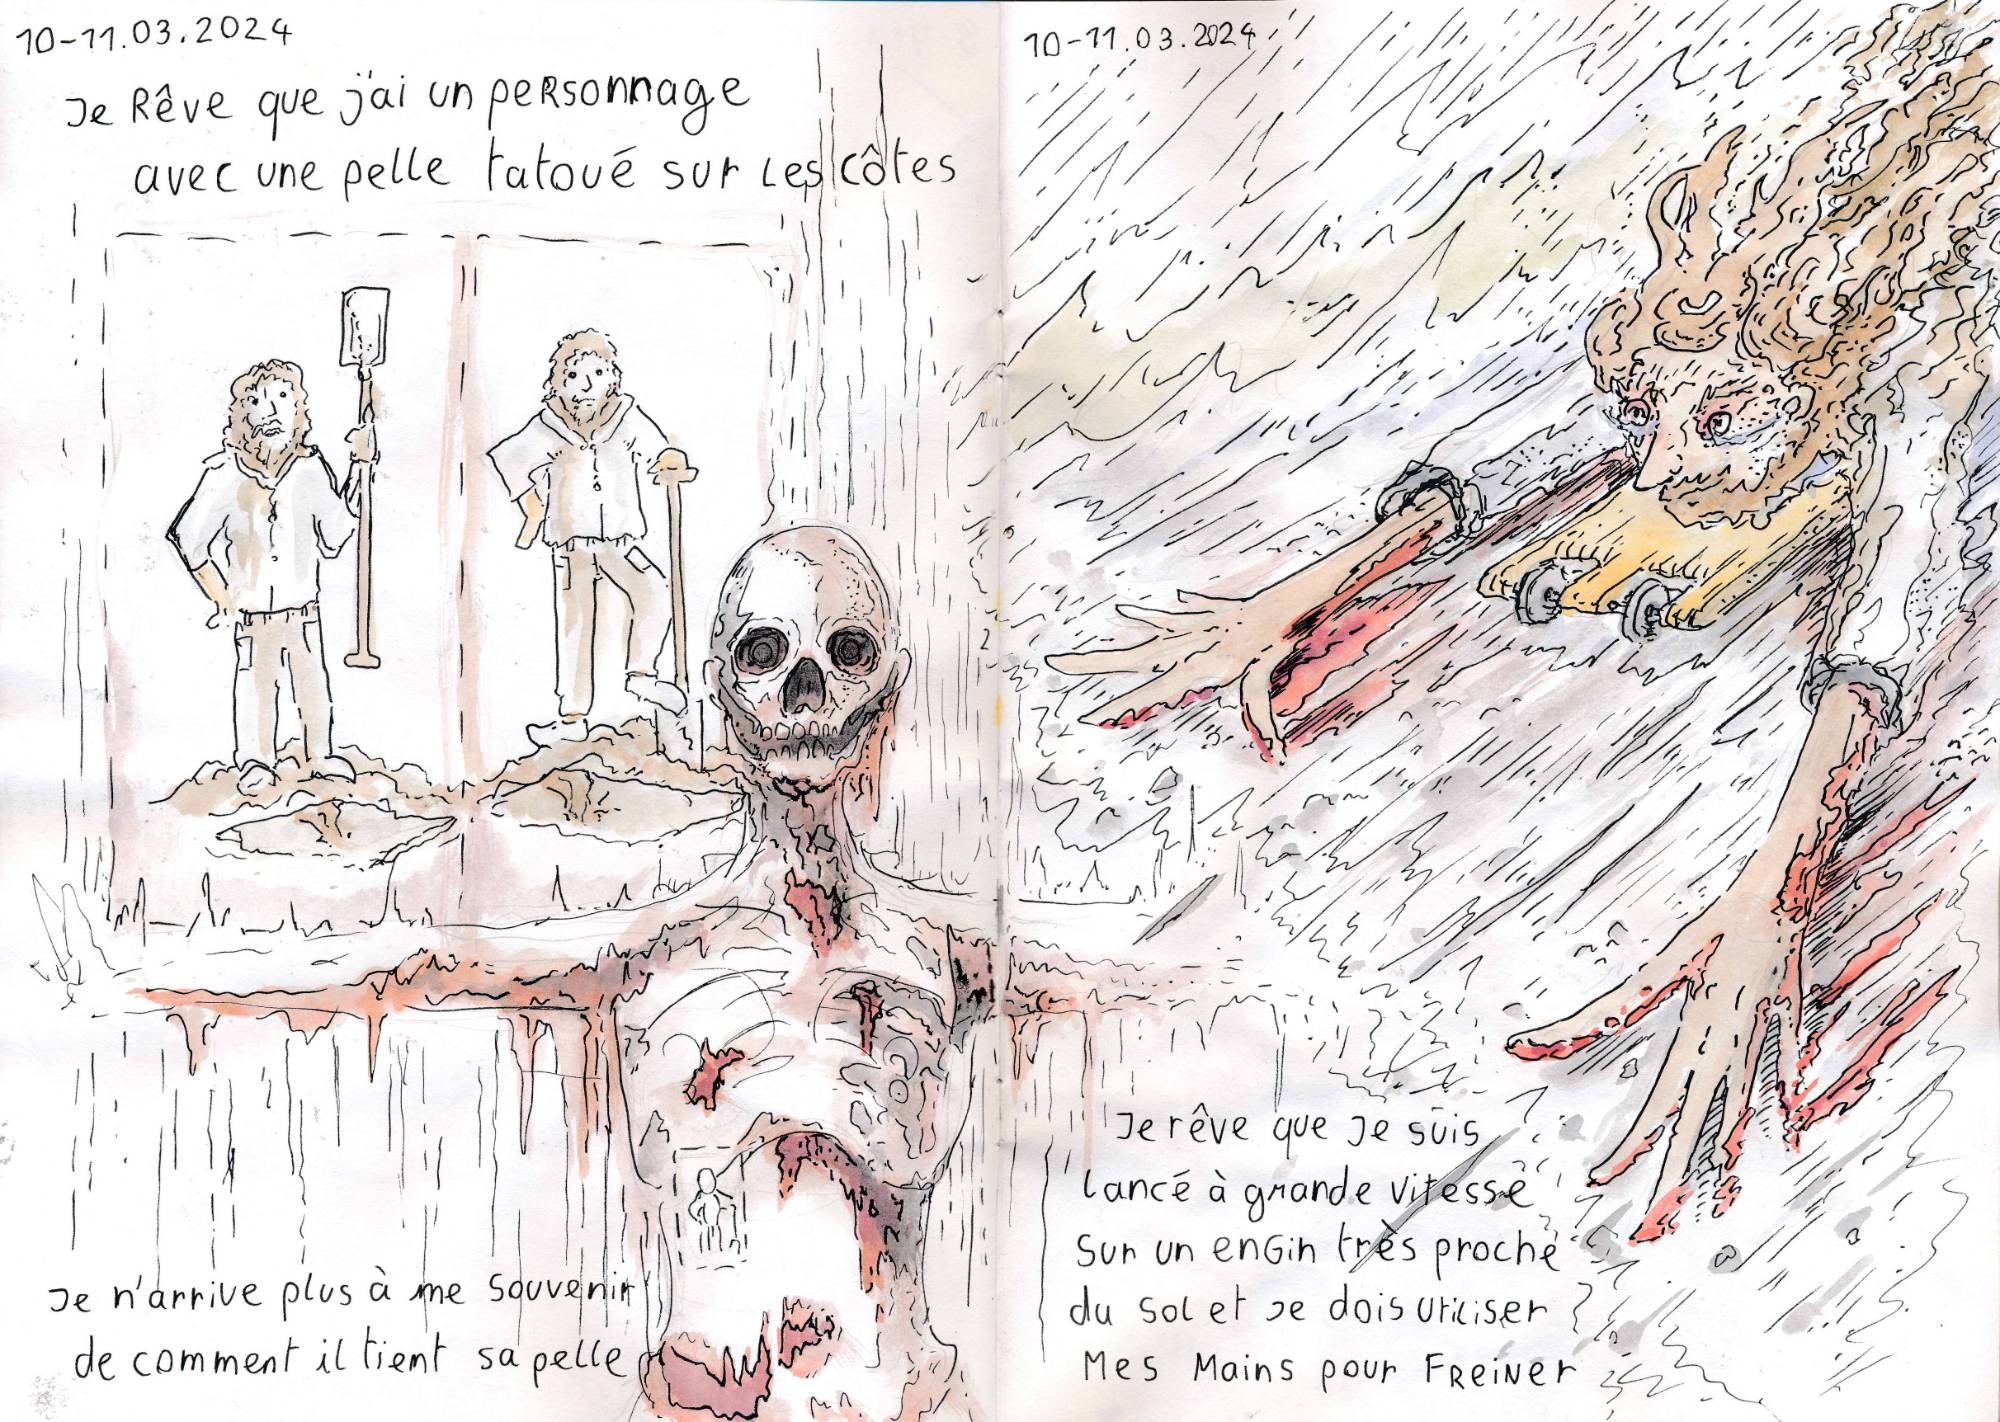 10-11.03.2024
Je Rêve que j'ai un personnage
avec une pelle tatoué sur les côtes
Je n'arrive plus à me souvenir
de comment il tient sa pelle
10-11.03.2024
Je rêve que je suis
lancé à grande vitesse
sur un engin très proche
du sol et je dois utiliser
Mes Mains pour Freiner